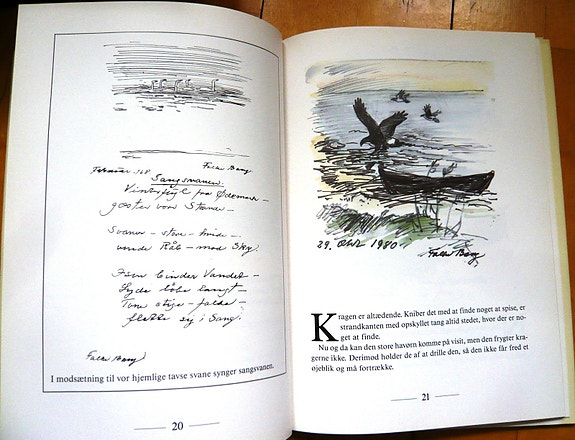 Februar 168 Falke Bang
Sangsvanen.
Vinterfugl fra Ødemark –
gæster vore Strande –
Svaner – store – hvide –
vilde Råb – mod Sky.
Isen binder Vandet –
Lyde lange –
Tone stige – falde –
flette sig i Sang.
Falke Bang
I modsætning til vor hjemlige tavse svane synger sangsvanen.
20
29. Okt. 1980
Falke Bang
Kragen er altædende. Kniber det med at finde noget at spise, er
strandkanten med opskyllet tang altid stedet, hvor der er no-
get at finde.
Nu og da kan den store havørn komme på visit, men den frygter kra-
gerne ikke. Derimod holder de af at drille den, så den ikke får fred et
øjeblik og må fortrække.
21